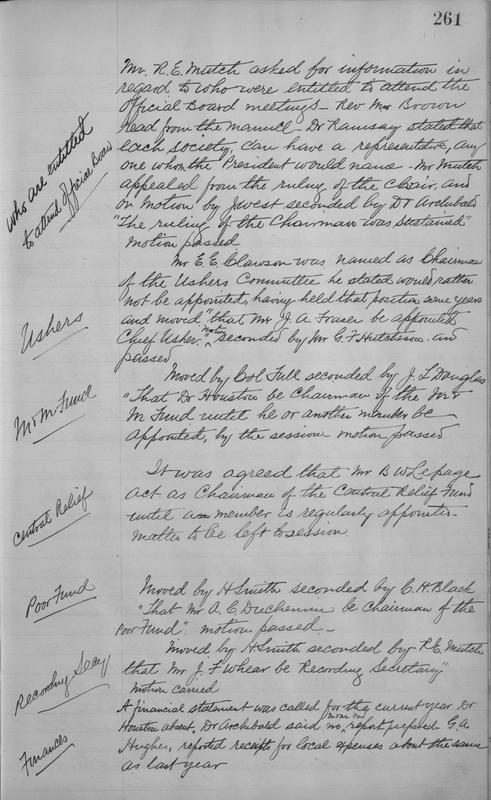 261
Mr. R. E. Mutch asked for information in
regard to who were entitled to attend the
Official Board meetings - Rev Mr Brown
read from the manuel - Dr Ramsay stated that
each society, can have a representative, any
one whom the President would name - Mr Mutch
appealed from the ruling of the Chair, and
on motion by J West seconded by Dr Archibald
"The ruling of the Chairman was sustained"
motion passed
who are entitled
to attend Official Board
Mr E. E. Clawson was named as Chairman
of the Ushers Committee he stated would rather
not be appointed, having held that position some years
and moved "that Mr J. A. Fraser be appointed
Chief Usher" motion seconded by Mr G. F Hutcheson and
passed
Ushers
Moved by Col Full seconded by J. L Douglas
"That Dr Houston be Chairman of the M &
M Fund until he or another member be
appointed, by the session - motion passed
M & M Fund
It was agreed that Mr B W Lepage
act as Chairman of the Central Relief Fund
until a member is regularly appointed -
matter to be left to session.
Central Relief
Moved by H Smith seconded by C. H. Black
"That Mr A. E Duchemin be Chairman of the
Poor Fund". motion passed -
Poor Fund
Moved by H Smith seconded by R E. Mutch
that Mr J. F Whear be Recording Secretary"
motion carried
Recording Secy
A financial statement was called for the current year Dr
Houston absent, Dr Archibald said no report prepared G. A
Hughes, reported receipts for local expenses about the same
as last year
Finances